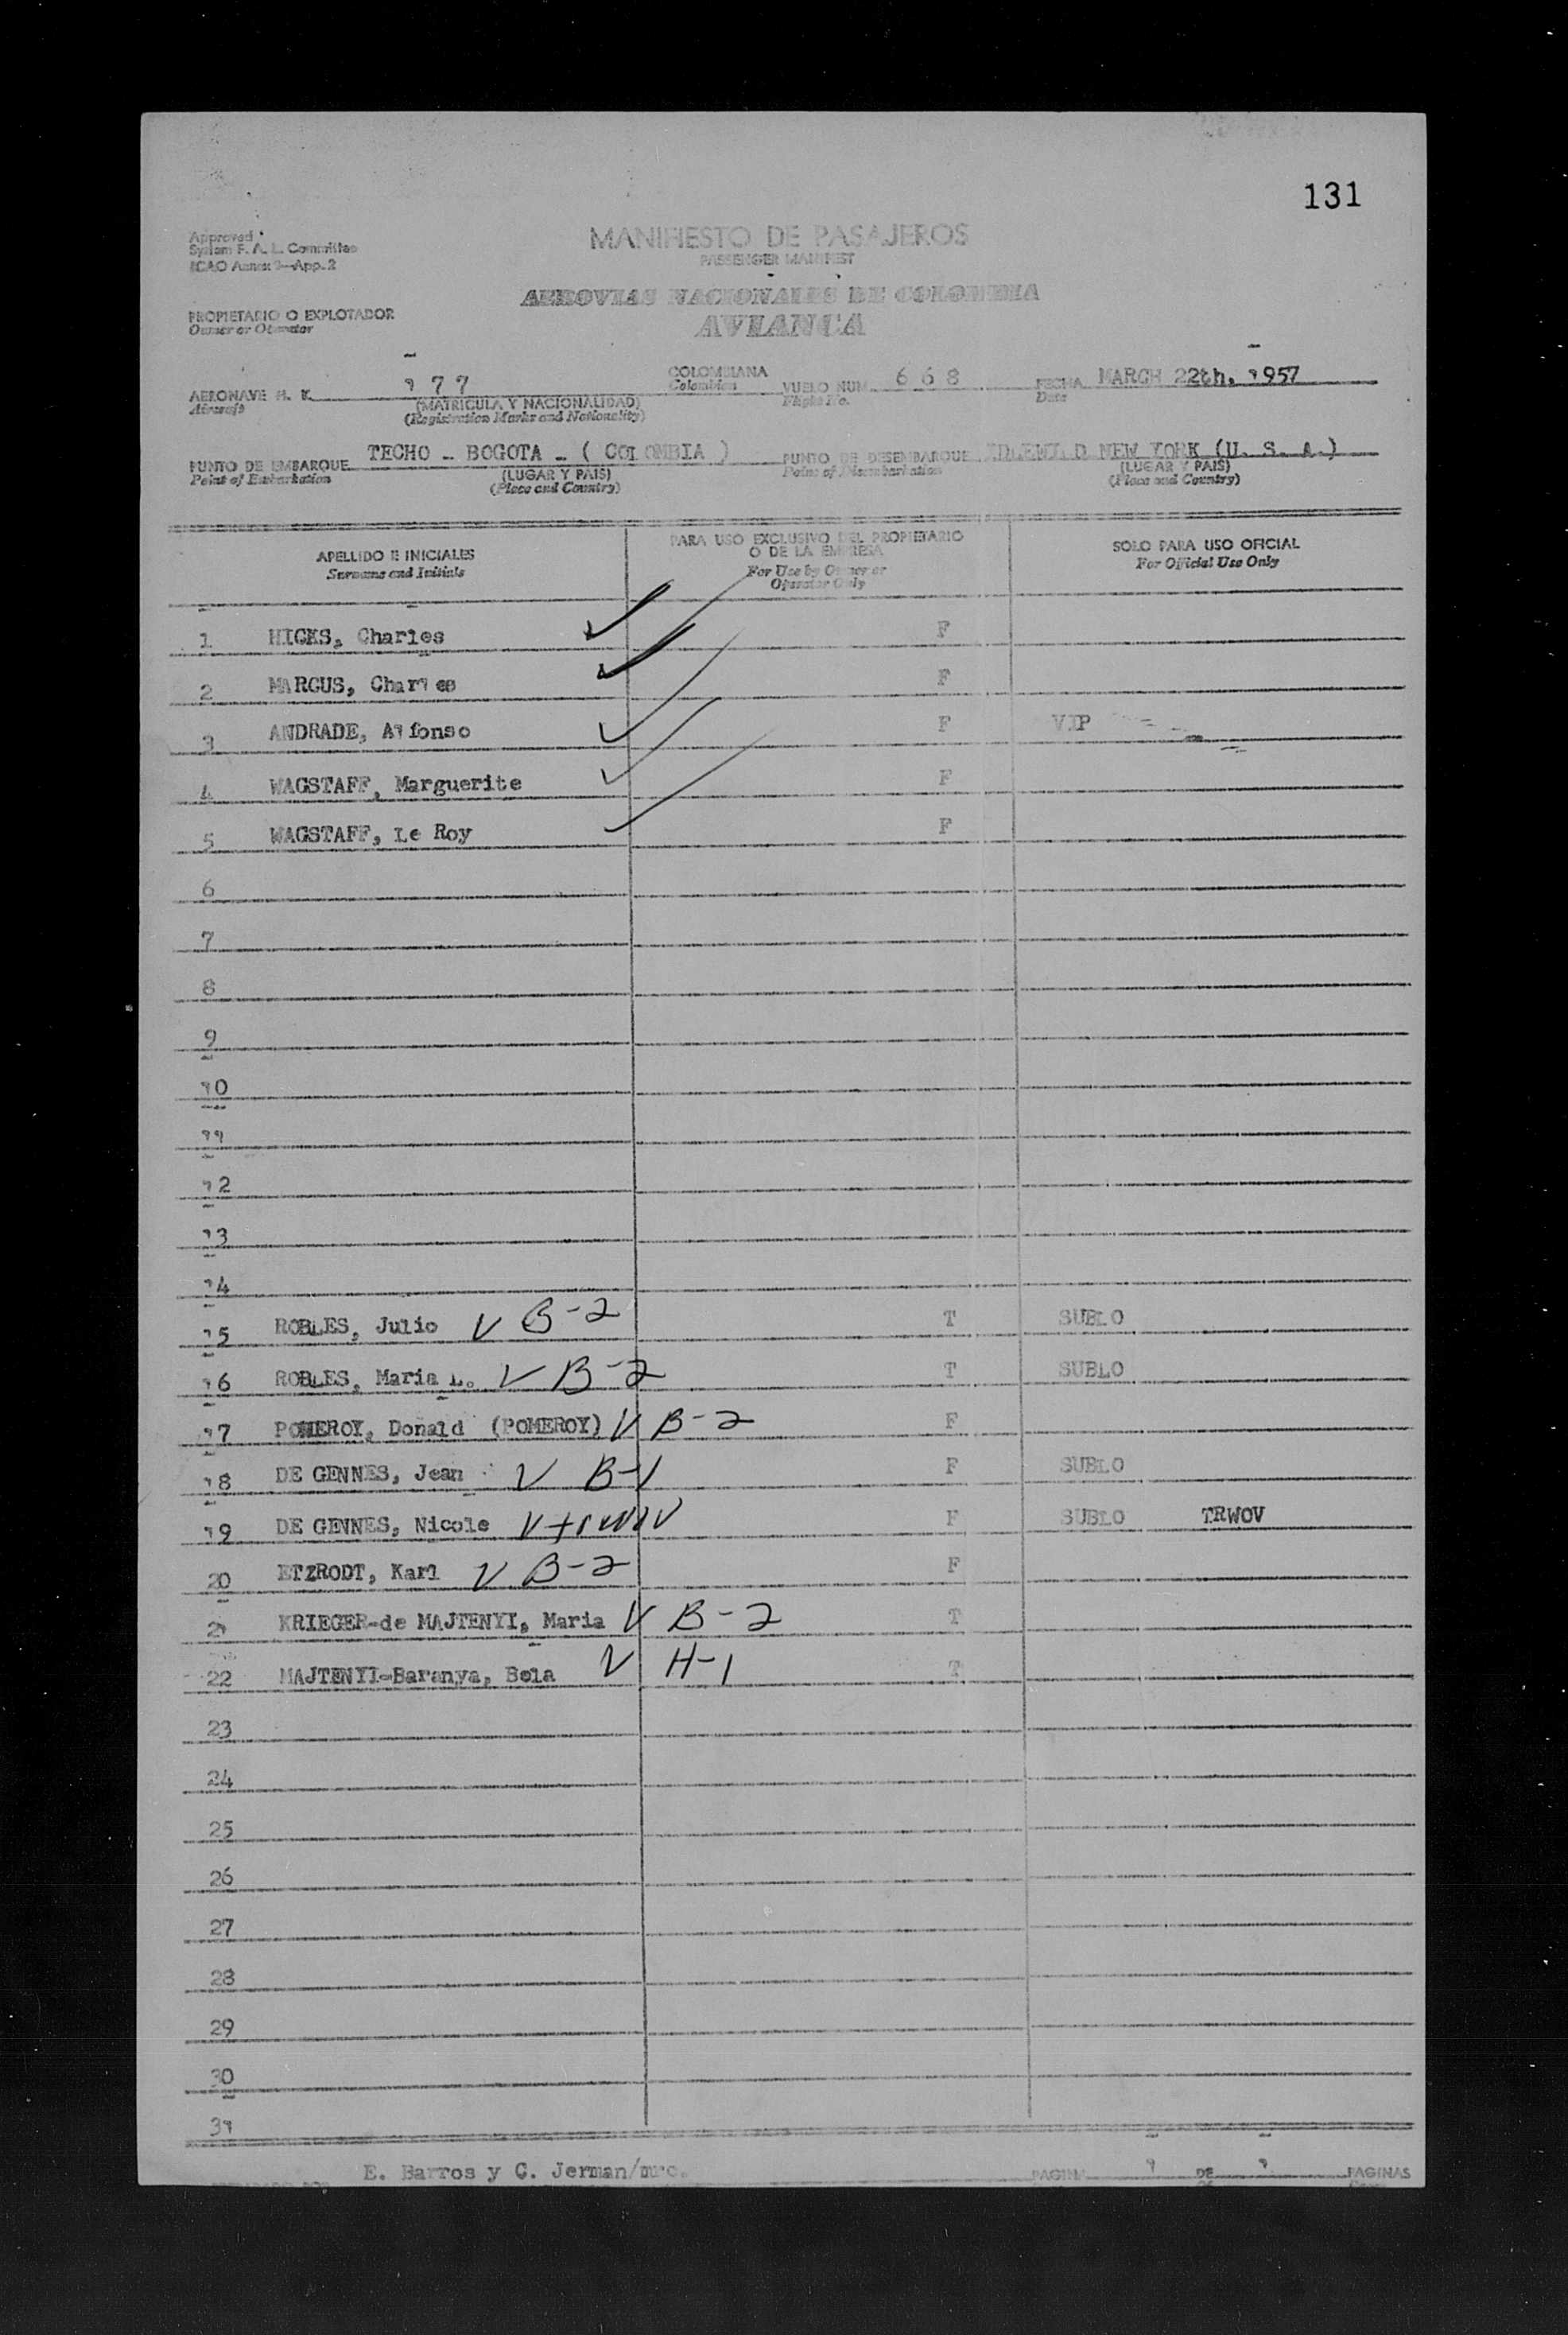 131
Approved
System F. A. L. Committee
ICAO Annex 9—App. 2
MANIFIESTO DE PASAJEROS
PASSENGER MANIFEST
AEROVIAS NACIONALES DE COLOMBIA
AVIANCA
PROPIETARIO O EXPLOTADOR
Owner or Operator
AERONAVE H. K. 177 COLOMBIANA VUELO NUM. 668 FECHA MARCH 22th. 1957
Aircraft (MATRICULA Y NACIONALIDAD) Colombian Flight No. Date
(Registration Marks and Nationality)
PUNTO DE EMBARQUE TECHO - BOGOTA - ( COLOMBIA ) PUNTO DE DESEMBARQUE IDLEWILD NEW YORK (U. S. A.)
Point of Embarkation (LUGAR Y PAIS) Point of Disembarkation (LUGAR Y PAIS)
(Place and Country) (Place and Country)
APELLIDO E INICIALES PARA USO EXCLUSIVO DEL PROPIETARIO O DE LA EMPRESA SOLO PARA USO OFICIAL
Surname and Initials For Use by Owner or Operator Only For Official Use Only
1 HICKS, Charles F
2 MARCUS, Charles F
3 ANDRADE, Alfonso F VIP
4 WAGSTAFF, Marguerite F
5 WAGSTAFF, Le Roy F
6
7
8
9
10
11
12
13
14
15 ROBLES, Julio V B-2 T SUBLO
16 ROBLES, Maria L. V B-2 T SUBLO
17 POMEROY, Donald (POMEROY) V B-2 F
18 DE GENNES, Jean V B-1 F SUBLO
19 DE GENNES, Nicole V F SUBLO TRWOV
20 ETZRODT, Karl V B-2 F
21 KRIEGER-de MAJTENYI, Maria V B-2 T
22 MAJTENYI-Baranya, Bela V H-1 T
23
24
25
26
27
28
29
30
31
E. Barros y C. Jerman/mrc. PAGINA 1 DE 1 PAGINAS